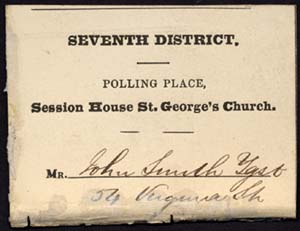 SEVENTH DISTRICT.
POLLING PLACE,
Session House St. George's Church.
MR. John Smith
54 Virginia St